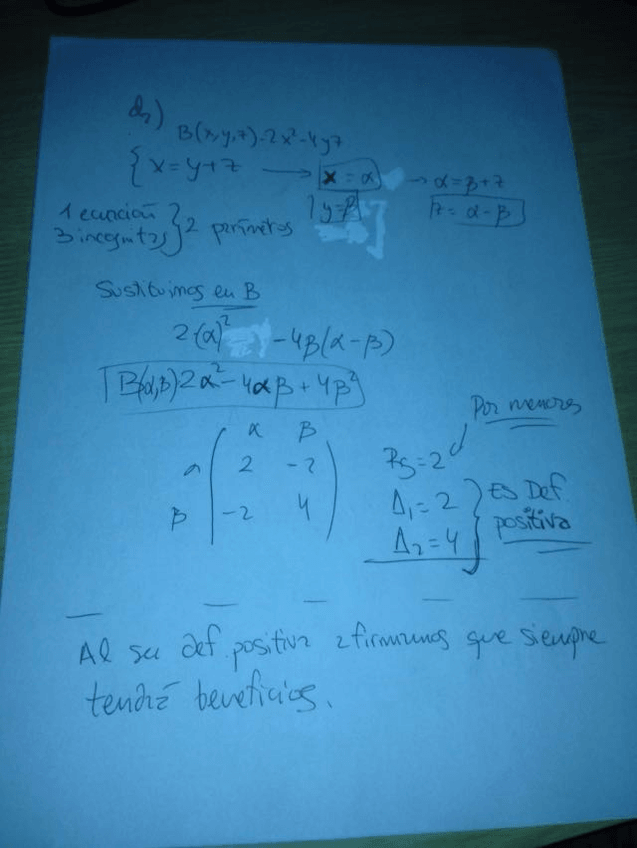 d)
B(x,y,z)=2x²-4yz
{ x=y+z → x=α → α=β+z
y=β z=α-β
1 ecuación
3 incognitas } 2 parámetros
Sustituimos en B
2·(α)² -4β(α-β)
B(α,β) 2α²-4αβ+4β²
α β
α 2 -2
β -2 4
Por menores
rg=2
Δ₁=2
Δ₂=4
Es Def.
positiva
Al ser def. positiva afirmamos que siempre
tendrá beneficios.